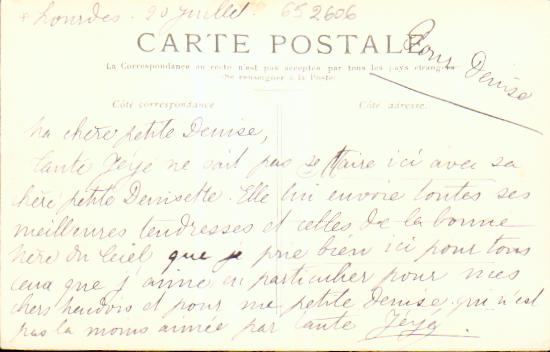 Lourdes. 20 Juillet. 652606
CARTE POSTALE
Pour Denise
La Correspondance au recto n'est pas acceptée par tous les pays étrangers
(Se renseigner à la Poste)
Côté correspondance
Côté adresse.
Ma chère petite Denise,
Tante Jéjé ne sait pas se taire ici avec sa
chère petite Denisette. Elle lui envoie toutes ses
meilleures tendresses et celles de la bonne
Mère du Ciel que je prie bien ici pour tous
ceux que j'aime en particulier pour mes
chers et pour ma petite Denise qui n'est
pas la moins aimée par tante Jéjé.